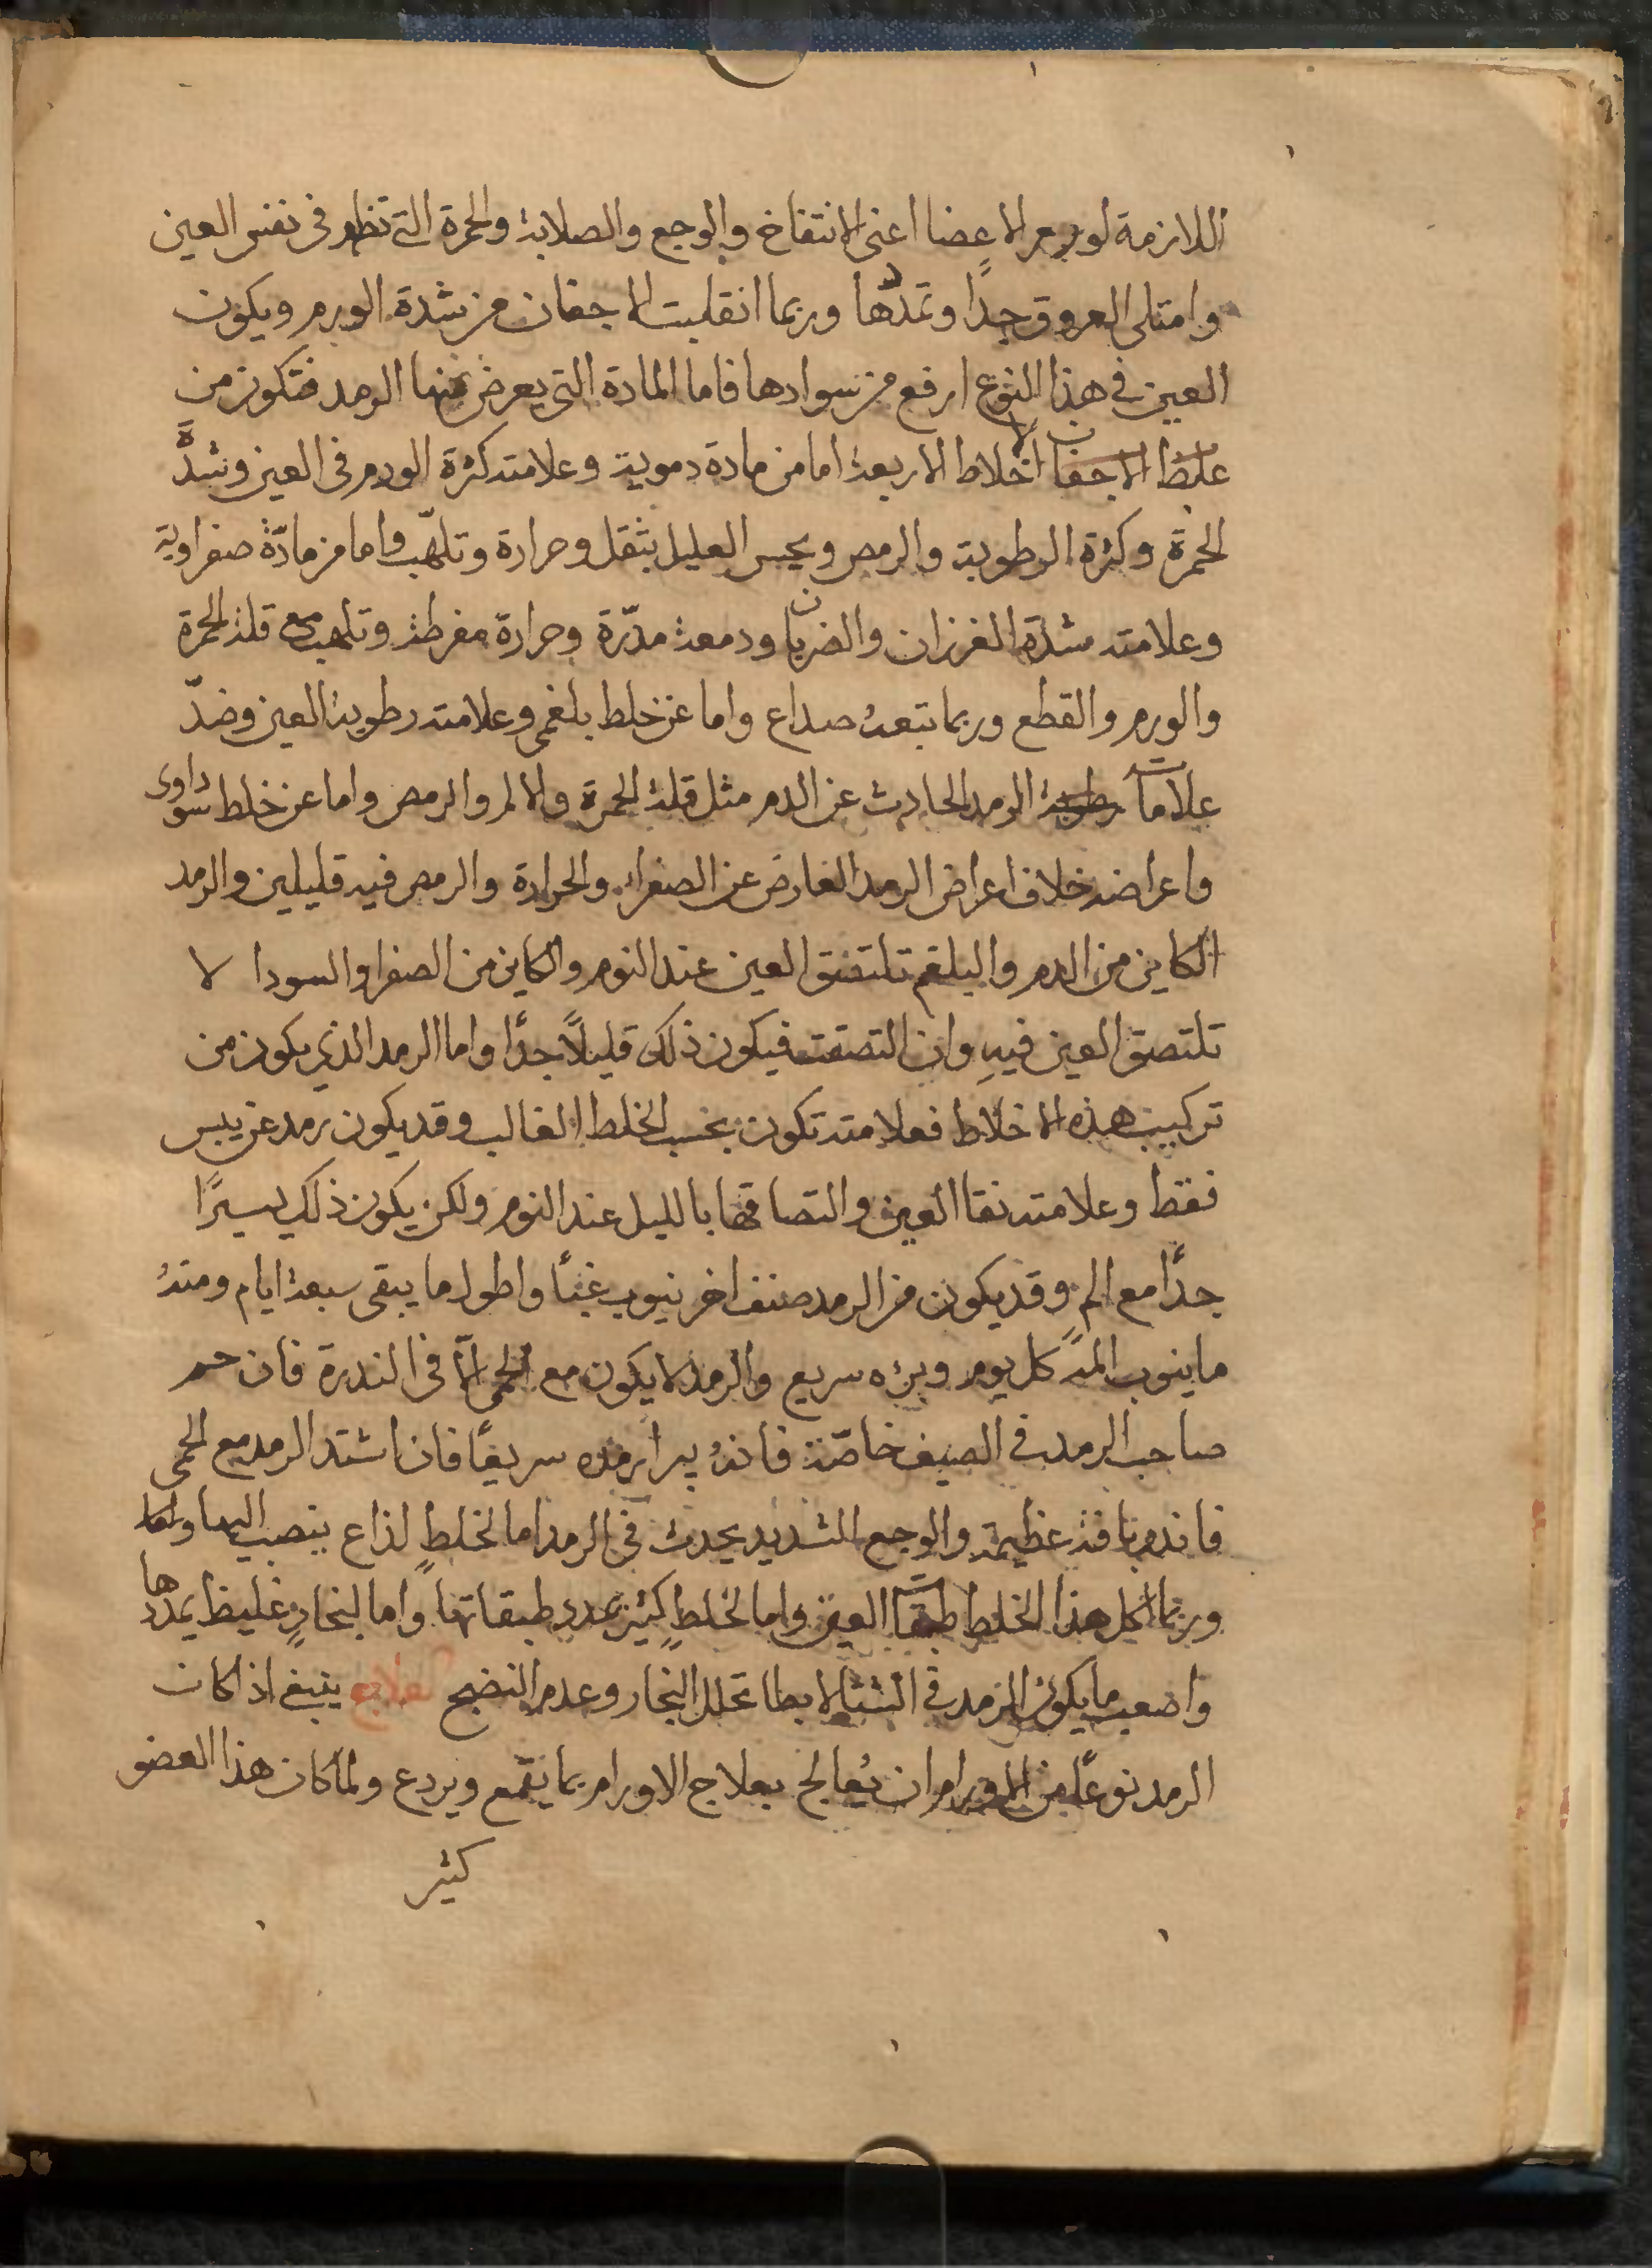 اللازمة لورم الاعضا اعنى الانتفاخ والوجع والصلابة والحمرة التى تظهر فى نفس العين
وامتلى العروق جدًا وتمددها وربما انقلبت الاجفان من شدة الورم ويكون
العين فى هذا النوع ارفع من سوادها فاما المادة التى يعرض منها الرمد فتكون من
غلظ الاجفان الاخلاط الاربعة اما من مادة دموية وعلامته كثرة الورم فى العين وشدّة
الحمرة وكثرة الرطوبة والرمص ويحس العليل بثقل وحرارة وتلهّب واما من مادّة صفراوية
وعلامته شدة الغرزان والضربان ودمعة مدّرة وحرارة مفرطة وتلهب مع قلة الحمرة
والورم والقطع وربما تبعه صداع واما عن خلط بلغمى وعلامته رطوبة العين وضدّ
علامات رطوبة الرمد الحادث عن الدم مثل قلة الحمرة والالم والرمص واما عن خلط سوداوى
واعراضه خلاف اعراض الرمد العارض عن الصفراء والحرارة والرمص فيه قليلين والرمد
الكاين من الدم والبلغم تلتصق العين عند النوم والكاين من الصفرا والسودا لا
تلتصق العين فيهِ وان التصقت فيكون ذلك قليلاً جدًا واما الرمد الذى يكون من
تركيب هذه الاخلاط فعلامته تكون بحسب الخلط الغالب وقد يكون رمد عن يبس
فقط وعلامته نقا العين والتصاقها بالليل عند النوم ولكن يكون ذلك يسيرًا
جدًا مع الم وقد يكون من الرمد صنف اخر ينوب غبًا واطول ما يبقى سبعة ايام ومنهُ
ما ينوب المه كل يوم وبرءه سريع والرمد لا يكون مع الحمى الّا فى الندرة فان حم
صاحب الرمد فى الصيف خاصّة فانهُ يبرا رمده سريعًا فان اشتد الرمد مع الحمى
فانذر بافة عظيمة والوجع الشديد يحدث فى الرمد اما لخلطٍ لذاع ينصب اليها واما
وربما اكل هذا الخلط طبقات العين واما لخلطٍ كثير يمدد طبقاتها واما لبخارٍ غليظ يمددها
واصعب ما يكون الرمد فى الشتا لابطا تحلل البخار وعدم النضج العلاج ينبغى اذا كان
الرمد نوعًا من الاورام ان يُعالج بعلاج الاورام بما يقمع ويردع ولما كان هذا العضو
كثير